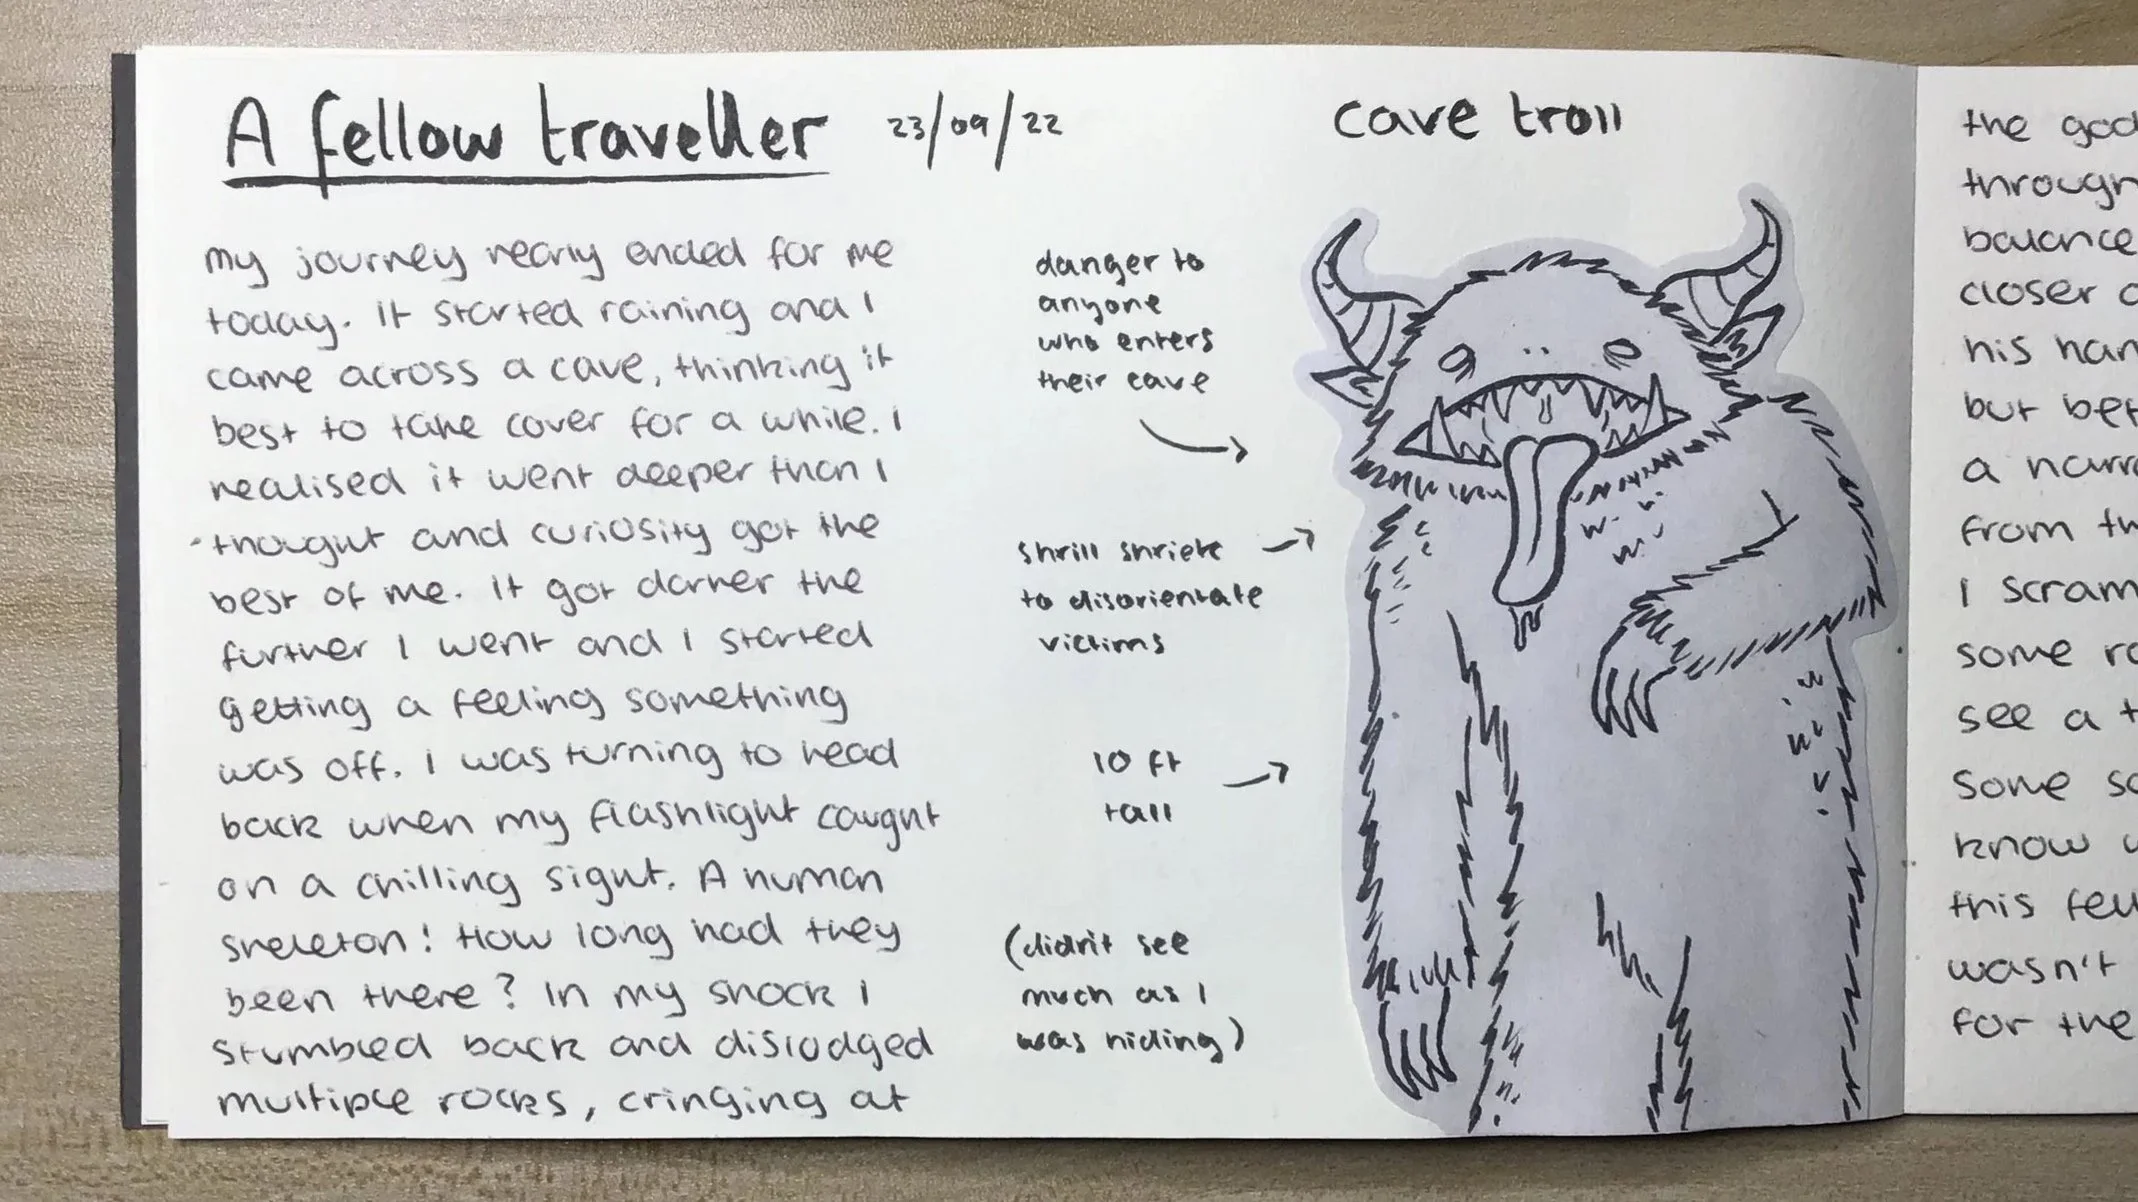 A fellow traveller 23/09/22
my journey nearly ended for me
today. It started raining and I
came across a cave, thinking it
best to take cover for a while. I
realised it went deeper than I
thought and curiosity got the
best of me. It got darker the
further I went and I started
getting a feeling something
was off. I was turning to head
back when my flashlight caught
on a chilling sight. A human
skeleton! How long had they
been there? In my shock I
stumbled back and dislodged
multiple rocks, cringing at
cave troll
danger to
anyone
who enters
their cave
shrill shriek
to disorientate
victims
10 ft
tall
(didn't see
much as I
was hiding)
the
balance
closer
his
but
a
from
I
some
see a
some
know
this
wasn't
for the